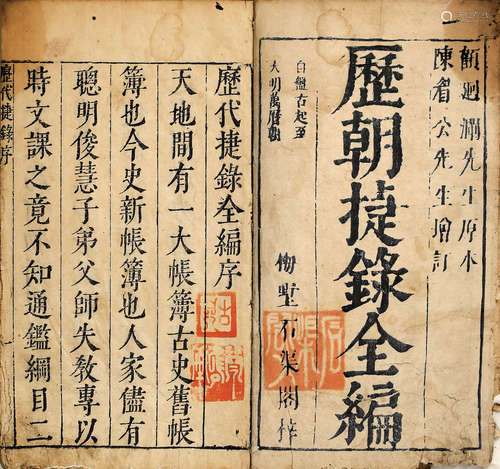 顧迴瀾先生原本
陳眉公先生增訂
歷朝捷錄全編
自盤古起至
大明萬曆朝
石渠閣梓
歷代捷錄全編序
天地間有一大帳簿古史舊帳
簿也今史新帳簿也人家儘有
聰明俊慧子弟父師失教專以
時文課之竟不知通鑑綱目二
歷代捷錄序